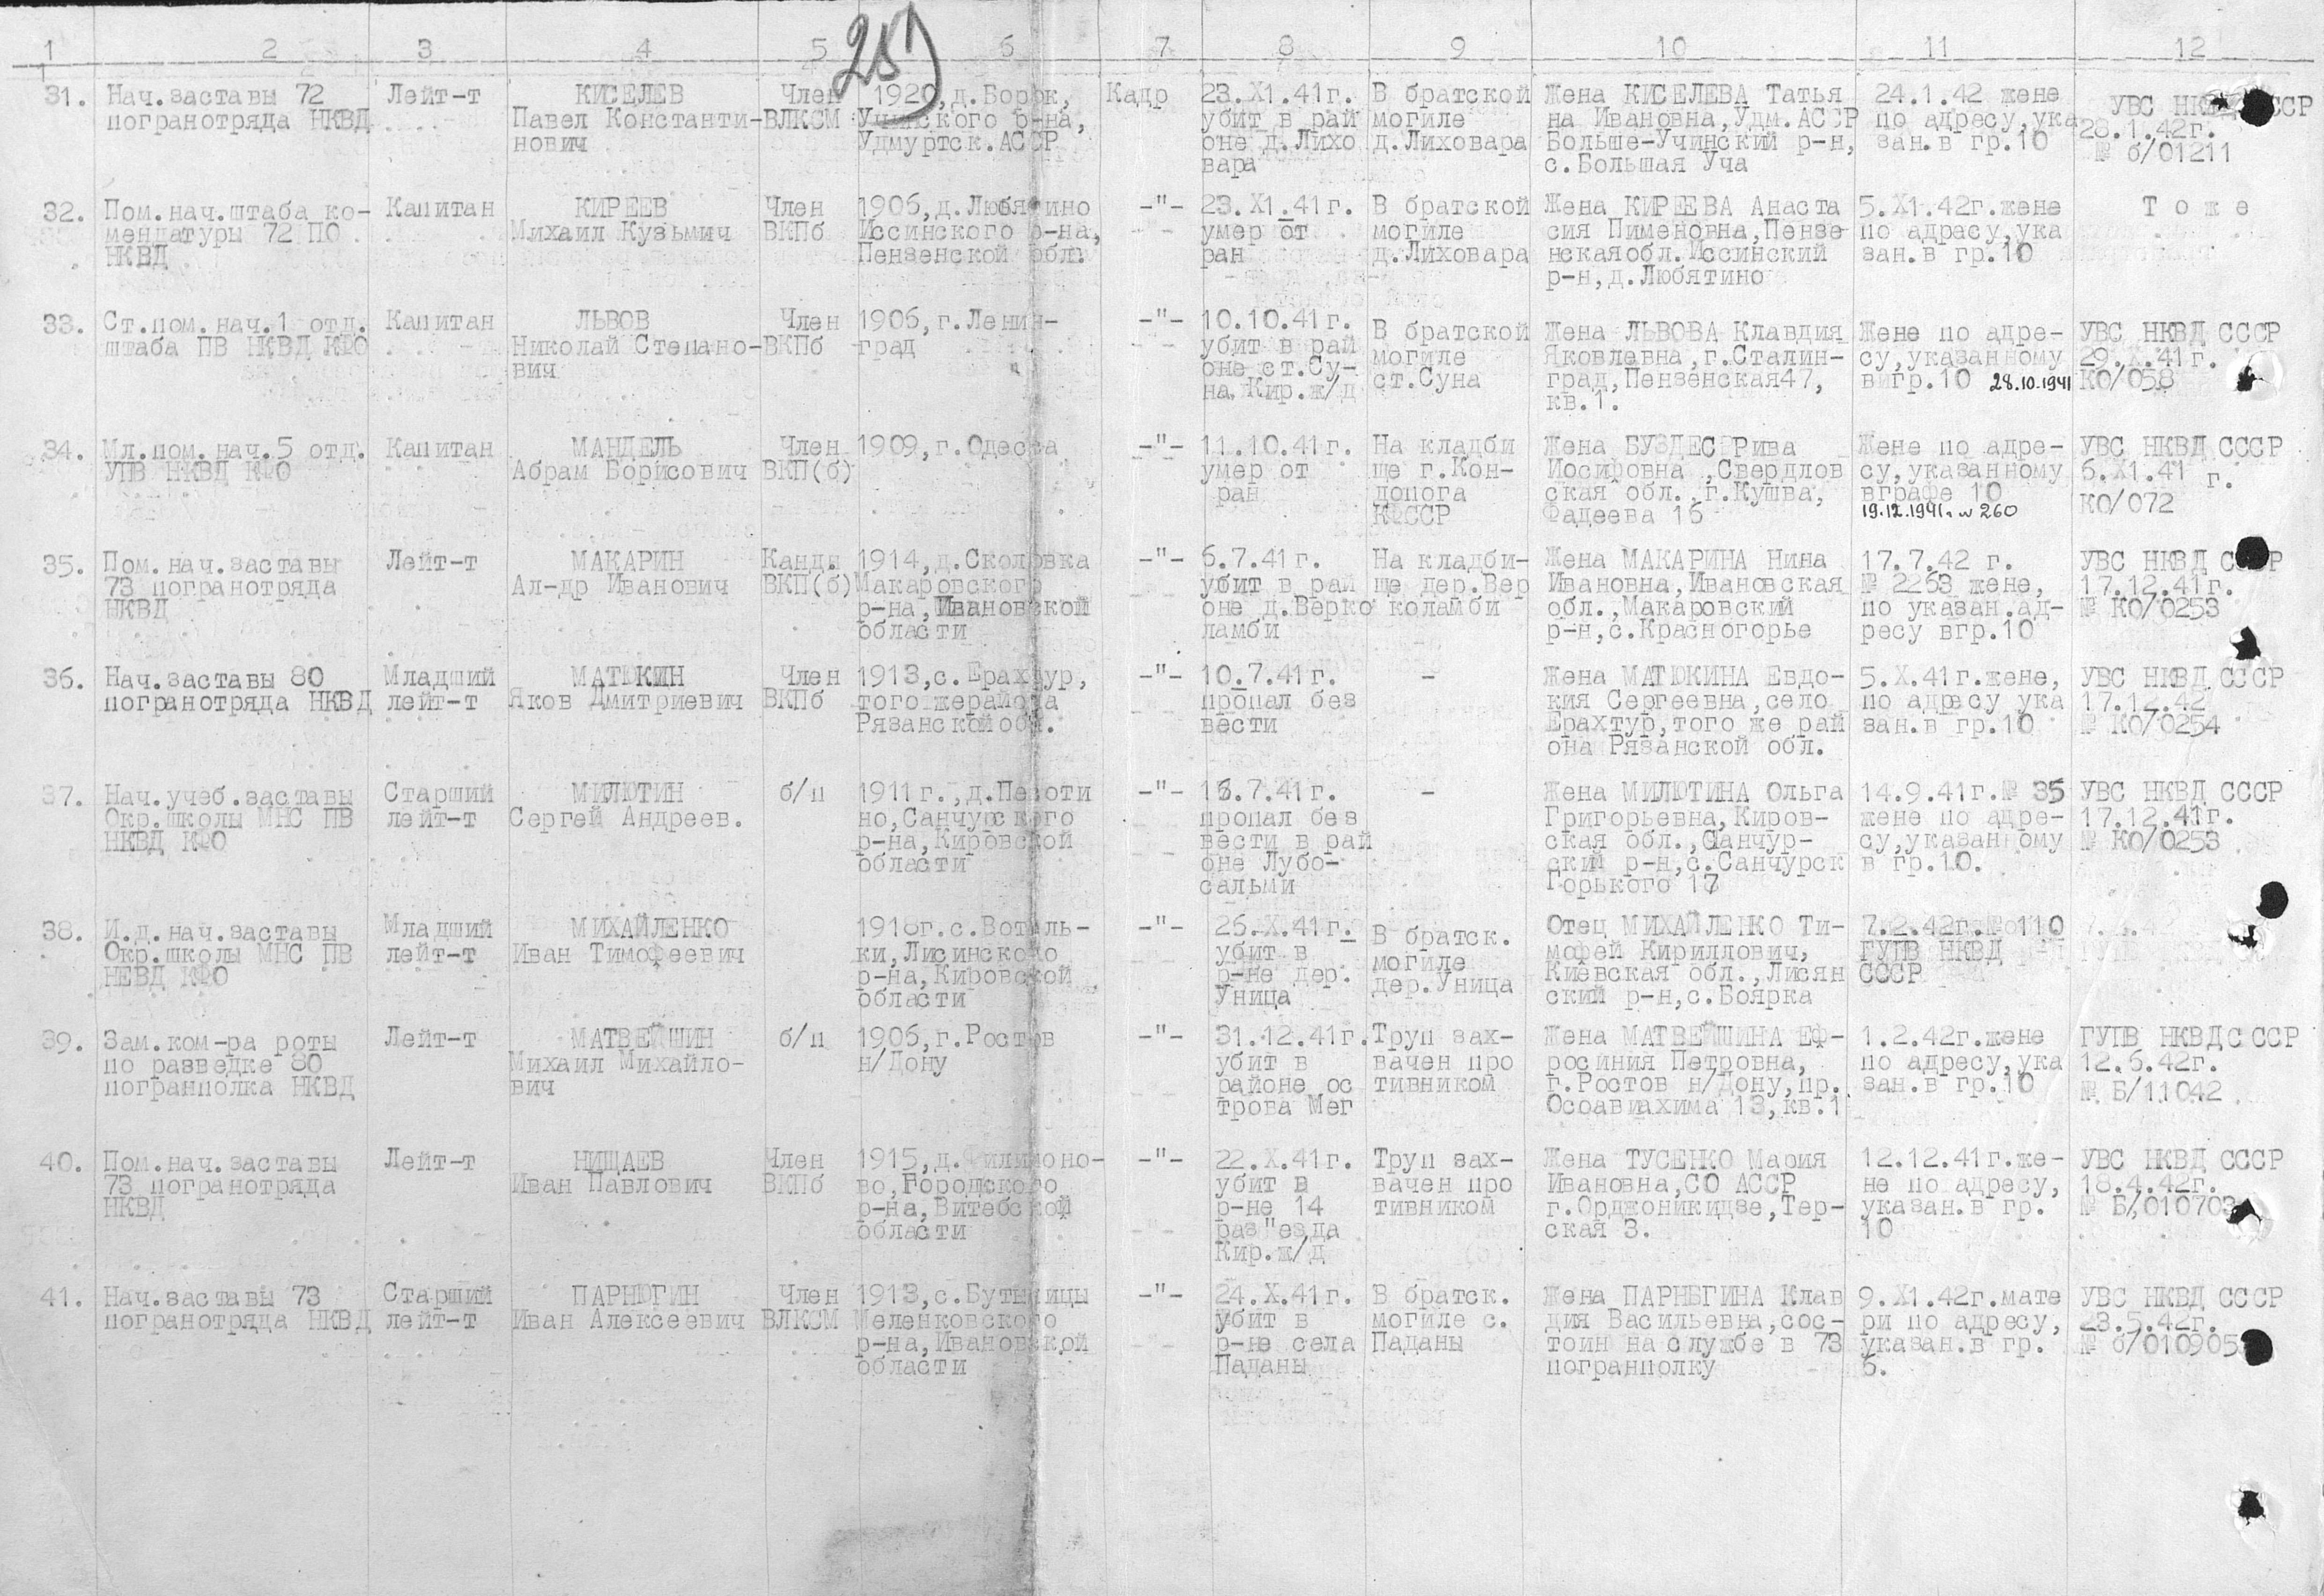 257
1 2 3 4 5 6 7 8 9 10 11 12
31. Нач.заставы 72 Лейт-т КИСЕЛЕВ Член 1920,д.Борок, Кадр 23.X1.41г. В братской Жена КИСЕЛЕВА Татья 24.1.42 жене УВС НКВД СССР
погранотряда НКВД Павел Константи- ВЛКСМ Учинского р-на, убит в рай могиле на Ивановна,Удм.АССР по адресу,ука 28.1.42г.
нович Удмуртск.АССР оне д.Лихо д.Лиховара Больше-Учинский р-н, зан.в гр.10 № б/01211
вара с.Большая Уча
32. Пом.нач.штаба ко- Капитан КИРЕЕВ Член 1906,д.Любятино -"- 23.X1.41г. В братской Жена КИРЕЕВА Анаста 5.X1.42г.жене Т о ж е
мендатуры 72 ПО Михаил Кузьмич ВКПб Иссинского р-на, умер от могиле сия Пименовна,Пензе по адресу,ука
НКВД Пензенской обл. ран д.Лиховара нская обл.Иссинский зан.в гр.10
р-н,д.Любятино
33. Ст.пом.нач.1 отд. Капитан ЛЬВОВ Член 1906,г.Ленин- -"- 10.10.41г. В братской Жена ЛЬВОВА Клавдия Жене по адре- УВС НКВД СССР
штаба ПВ НКВД КФО Николай Степано- ВКПб град убит в рай могиле Яковлевна,г.Сталин- су,указанному 29.X.41г.
вич оне ст.Су- ст.Суна град,Пензенская47, вгр.10 28.10.1941 КО/058
на Кир.ж/д кв.1.
34. Мл.пом.нач.5 отд. Капитан МАНДЕЛЬ Член 1909,г.Одесса -"- 11.10.41г. На кладби Жена БУЗДЕС Рива Жене по адре- УВС НКВД СССР
УПВ НКВД КФО Абрам Борисович ВКП(б) умер от ще г.Кон- Иосифовна ,Свердлов су,указанному 6.X1.41 г.
ран допога ская обл.,г.Кушва, вграфе 10 КО/072
КФССР Фадеева 16 19.12.1941г. № 260
35. Пом.нач.заставы Лейт-т МАКАРИН Канд. 1914,д.Сколовка -"- 6.7.41г. На кладби- Жена МАКАРИНА Нина 17.7.42 г. УВС НКВД СССР
73 погранотряда Ал-др Иванович ВКП(б) Макаровского убит в рай ще дер.Вер Ивановна,Ивановская № 2263 жене, 17.12.41г.
НКВД р-на,Ивановской оне д.Верко коламби обл.,Макаровский по указан.ад- № КО/0253
области ламби р-н,с.Красногорье ресу вгр.10
36. Нач.заставы 80 Младший МАТЮКИН Член 1913,с.Ерахтур, -"- 10.7.41г. - Жена МАТЮКИНА Евдо- 5.X.41г.жене, УВС НКВД СССР
погранотряда НКВД лейт-т Яков Дмитриевич ВКПб того жерайона пропал без кия Сергеевна,село по адресу ука 17.12.42
Рязанской обл. вести Ерахтур,того же рай зан.в гр.10 № КО/0254
она Рязанской обл.
37. Нач.учеб.заставы Старший МИЛЮТИН б/п 1911г.,д.Пекоти -"- 16.7.41г. - Жена МИЛЮТИНА Ольга 14.9.41г.№ 35 УВС НКВД СССР
Окр.школы МНС ПВ лейт-т Сергей Андреев. но,Санчурского пропал без Григорьевна,Киров- жене по адре- 17.12.41г.
НКВД КФО р-на,Кировской вести в рай ская обл.,Санчур- су,указанному № КО/0253
области оне Лубо- ский р-н,с.Санчурск в гр.10.
сальми Горького
38. И.д.нач.заставы Младший МИХАЙЛЕНКО 1918г.с.Вотыль- -"- 26.X.41г. В братск. Отец МИХАЙЛЕНКО Ти- 7.2.42г.№ 110
Окр.школы МНС ПВ лейт-т Иван Тимофеевич ки,Лисинского убит в могиле мофей Кириллович, ГУПВ НКВД
НЕВД КФО р-на,Кировской р-не дер. дер.Уница Киевская обл.,Лисян СССР
области Уница ский р-н,с.Боярка
39. Зам.ком-ра роты Лейт-т МАТВЕЙШИН б/п 1906,г.Ростов -"- 31.12.41г. Труп зах- Жена МАТВЕЙШИНА Еф- 1.2.42г.жене ГУПВ НКВДС ССР
по разведке 80 Михаил Михайло- н/Дону убит в вачен про росиния Петровна, по адресу,ука 12.6.42г.
погранполка НКВД вич районе ос тивником г.Ростов н/Дону,пр. зан.в гр.10 № Б/11042
трова Мег Осоавиахима 13,кв.1
40. Пом.нач.заставы Лейт-т НИЩАЕВ Член 1915,д.Филимоно- -"- 22.X.41г. Труп зах- Жена ТУСЕНКО Мария 12.12.41г.же- УВС НКВД СССР
73 погранотряда Иван Павлович ВКПб во,Городского убит в вачен про Ивановна,СО АССР не по адресу, 18.4.42г.
НКВД р-на,Витебской р-не 14 тивником г.Орджоникидзе,Тер- указан.в гр. № Б/010703
области раз"езда ская 3. 10
Кир.ж/д
41. Нач.заставы 73 Старший ПАРНЮГИН Член 1913,с.Бутылицы -"- 24.X.41г. В братск. Жена ПАРНЮГИНА Клав 9.X1.42г.мате УВС НКВД СССР
погранотряда НКВД лейт-т Иван Алексеевич ВЛКСМ Меленковского убит в могиле с. дия Васильевна,сос- ри по адресу, 23.5.42г.
р-на,Ивановской р-не села Паданы тоин на службе в 73 указан.в гр. № б/010905
области Паданы погранполку 6.